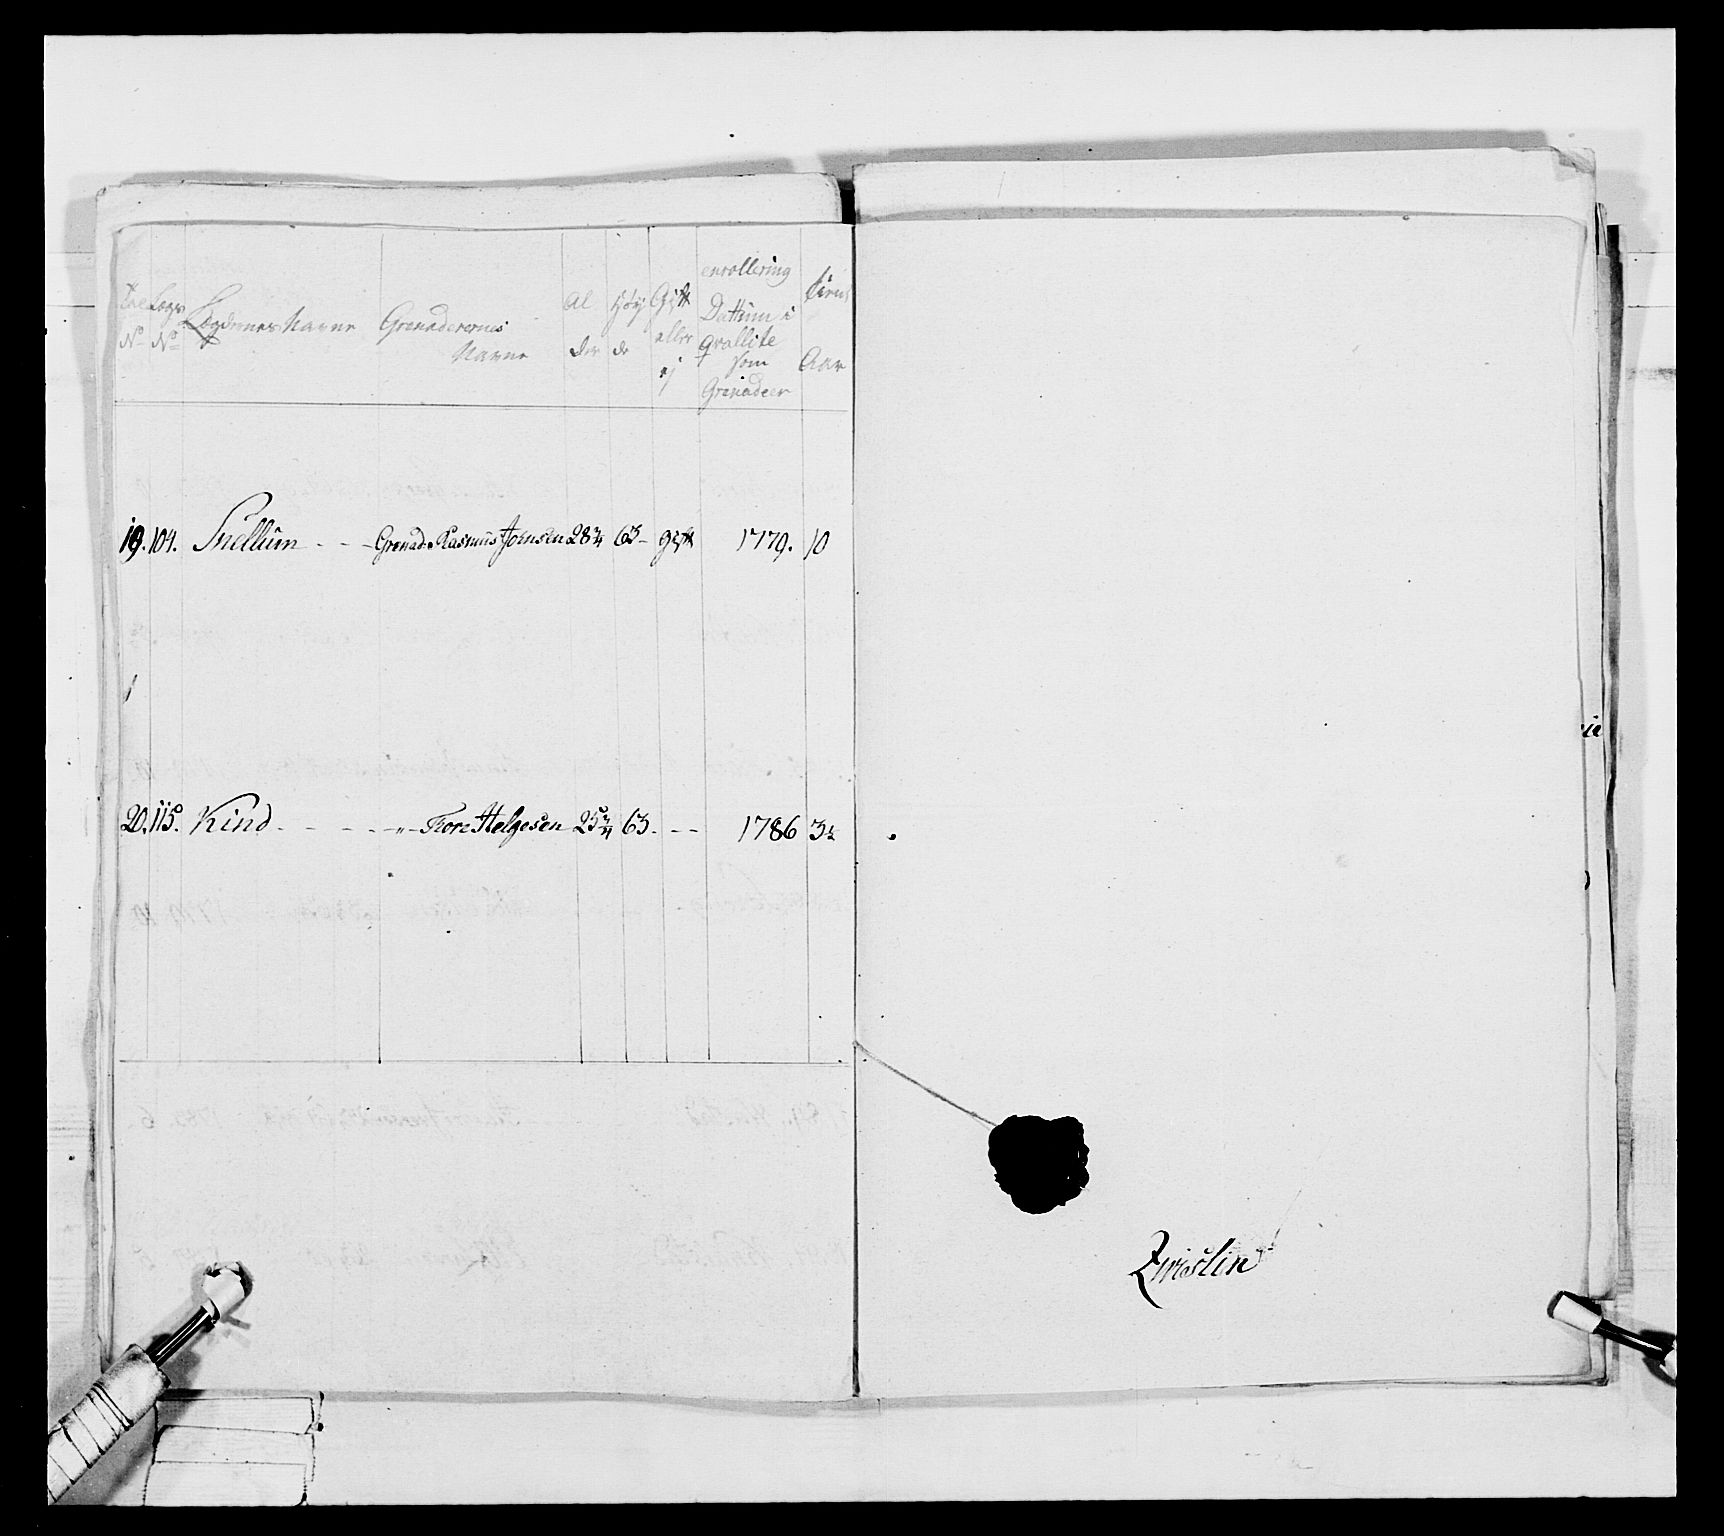 Lægdernes Navne
Grenaderernes Navne
Al der
Høy de
Gift eller ej
enrollering Dattum i Qvallite som Grenadeer
Aar
19. 104. Snellum - - - Grenad. Rasmus Joensen 28 3/4 63 - gift 1779. 10
20. 115. Kind - - - - - " - Tore Helgesen 25 3/4 63. - - 1786 3 1/2